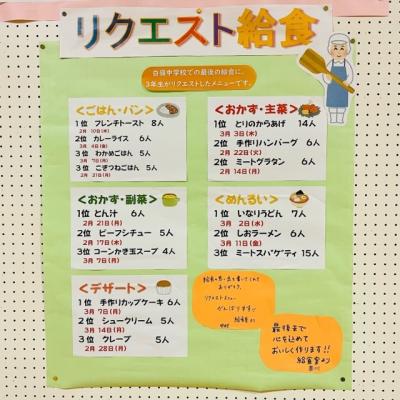 リクエスト給食
白嶺中学校での最後の給食に、
3年生がリクエストしたメニューです。
＜ごはん・パン＞
1位 フレンチトースト 8人
2月10日(木)
2位 カレーライス 6人
3月4日(金)
3位 わかめごはん 5人
3月7日(月)
3位 こぎつねごはん 5人
2月21日(月)
＜おかず・主菜＞
1位 とりのからあげ 14人
3月3日(木)
2位 手作りハンバーグ 6人
2月22日(火)
2位 ミートグラタン 6人
2月14日(月)
＜おかず・副菜＞
1位 とん汁 6人
2月21日(月)
2位 ビーフシチュー 5人
2月17日(木)
3位 コーンかき玉スープ 4人
3月7日(月)
＜めんるい＞
1位 いなりうどん 7人
3月2日(水)
2位 しおラーメン 6人
3月11日(金)
3位 ミートスパゲティ 15人
＜デザート＞
1位 手作りカップケーキ 6人
3月7日(月)
2位 シュークリーム 5人
3月14日(月)
3位 クレープ 5人
2月28日(月)
ありがとう。
リクエストメニュー
がんばります!
最後まで
心を込めて
おいしく作ります!!
給食室より